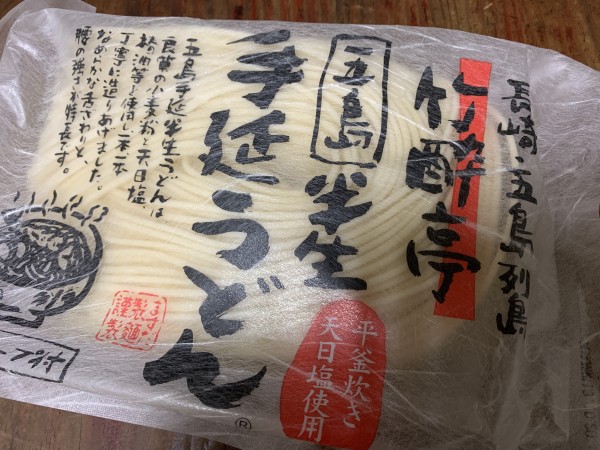 長崎・五島列島
竹酔亭
五島
半生
手延うどん
®
五島手延半生うどんは
良質の小麦粉と天日塩、
椿油等を使用し一本一本
丁寧に造りあげました。
なめらかな舌ざわりと、
腰の強さが特長です。
平釜炊き
天日塩使用
ますだ
製麺
謹製